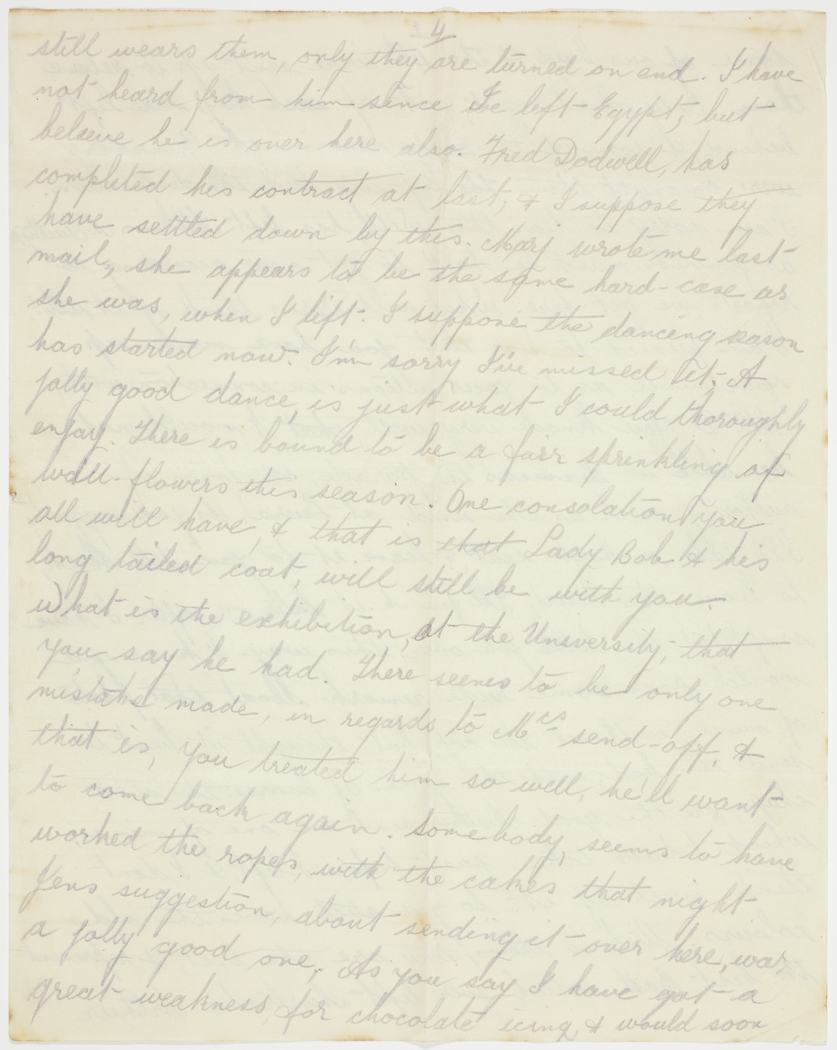 4
still wears them, only they are turned on end. I have
not heard from him since he left Egypt, but
beleive he is over here also. Fred Dodwell, has
completed his contract at last, & I suppose they
have settled down by this. Marj wrote me last
mail, she appears to be the same hard-case as
she was, when I left. I suppose the dancing season
has started now. I'm sorry I've missed it. A
jolly good dance, is just what I could thoroughly
enjoy. There is bound to be a fair sprinkling of
wall-flowers this season. One consolation you
all will have, & that is that Lady Bob & his
long tailed coat, will still be with you.
What is the exhibition, at the University, that
you say he had. There seems to be only one
mistake made, in regards to Mcs send-off, &
that is, you treated him so well, he'll want
to come back again. Somebody, seems to have
worked the ropes, with the cakes that night
Jens suggestion, about sending it over here, was
a jolly good one, As you say I have got a
great weakness, for chocolate icing, & would soon